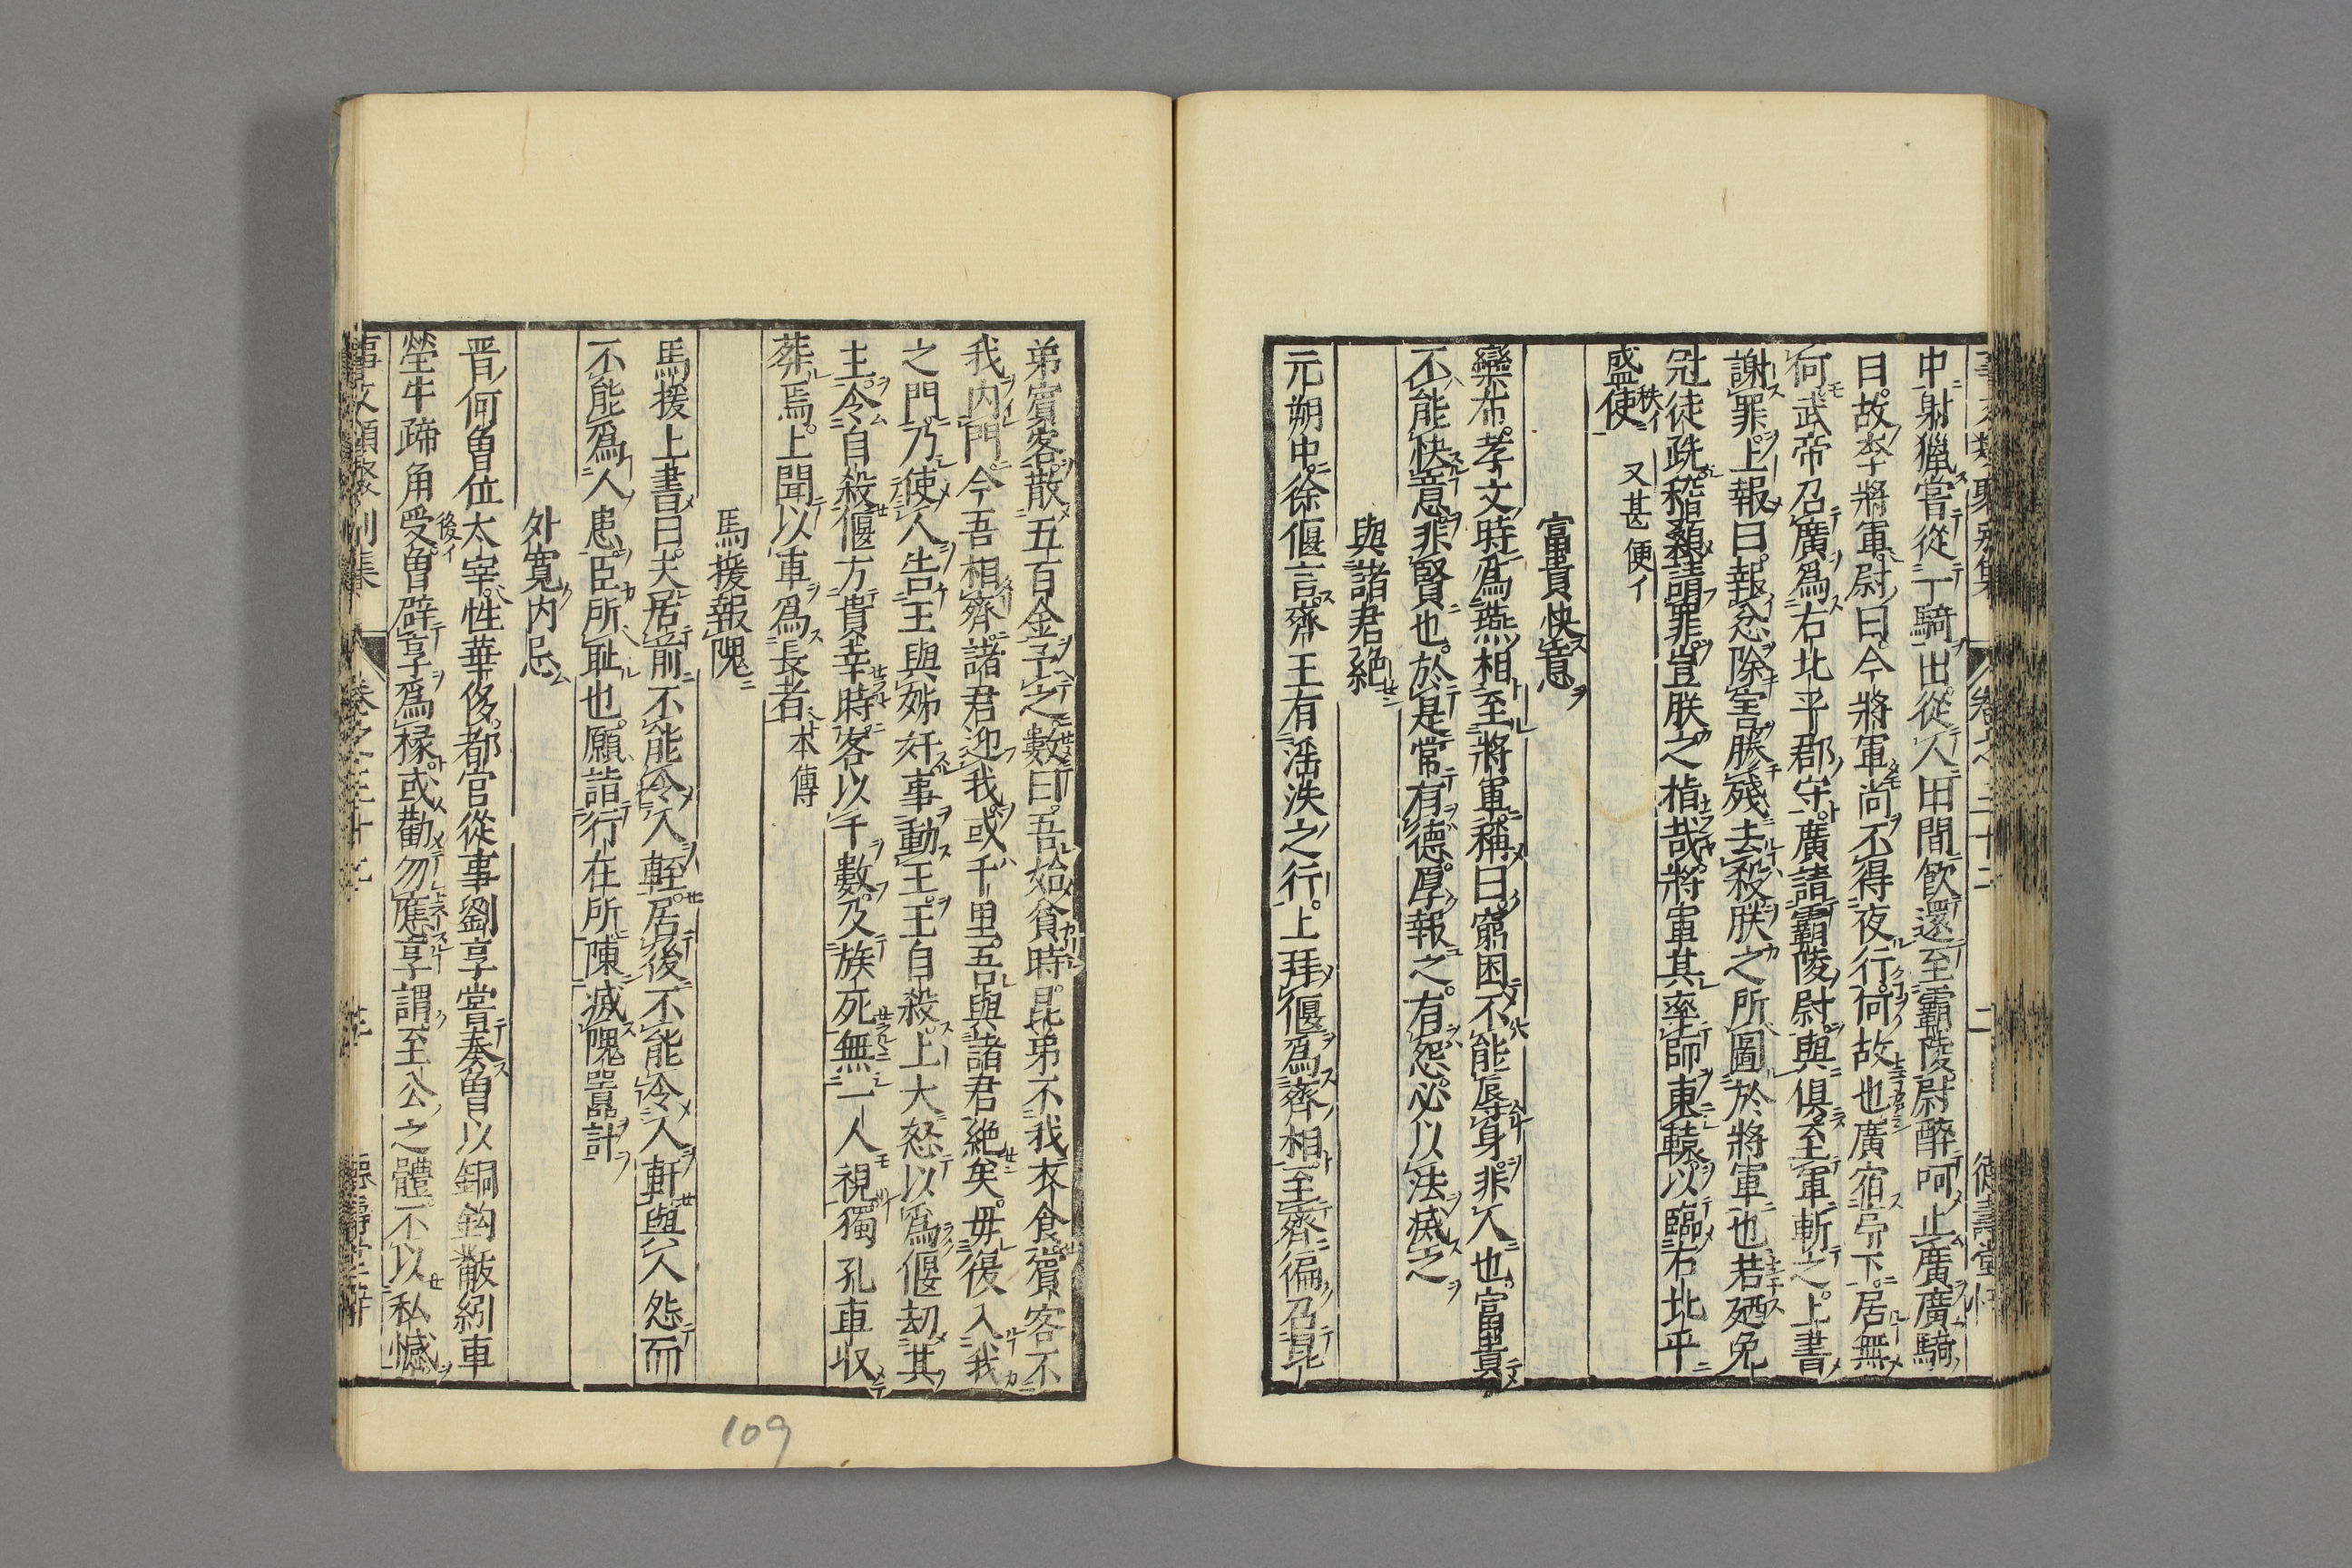 中射獵嘗從一騎出從人田間飲還至霸陵尉醉呵止廣廣騎
曰故李將軍尉曰今將軍尚不得夜行何故也廣宿亭下居無
何武帝召廣爲右北平郡守廣請霸陵尉與俱至軍斬之上書
謝罪上報曰報忿除害勝殘去殺朕之所圖於將軍也若廼免
冠徒跣稽顙請罪豈朕之指哉將軍其率師東轅以臨右北平
盛使秩イ 又甚便イ
富貴快意
欒布孝文時爲燕相至將軍稱曰窮困不能辱身非人也富貴
不能快意非賢也於是常有德厚報之有怨必以法滅之
與諸君絕
元朔中徐偃言齊王有淫泆之行上拜偃爲齊相至齊徧召昆
弟賓客散五百金予之數曰吾始貧時昆弟不我衣食賓客不
我内門今吾相齊諸君迎我或千里吾與諸君絕矣毋復入我
之門乃使人告王與姊奸事動王王自殺上大怒以爲偃刧其
主令自殺偃方貴幸時客以千數及族死無一人視獨孔車收
葬焉上聞以車爲長者本傳
馬援報隗
馬援上書曰夫居前不能令人輊居後不能令人軒與人怨而
不能爲人患臣所耻也願詣行在所陳滅隗囂計
外寬内忌
晋何曽位太宰性華侈都官從事劉享嘗奏曽以銅鈎黻紖車
瑩牛蹄角後イ受曽辟享爲椽或勸勿應享謂至公之體不以私憾